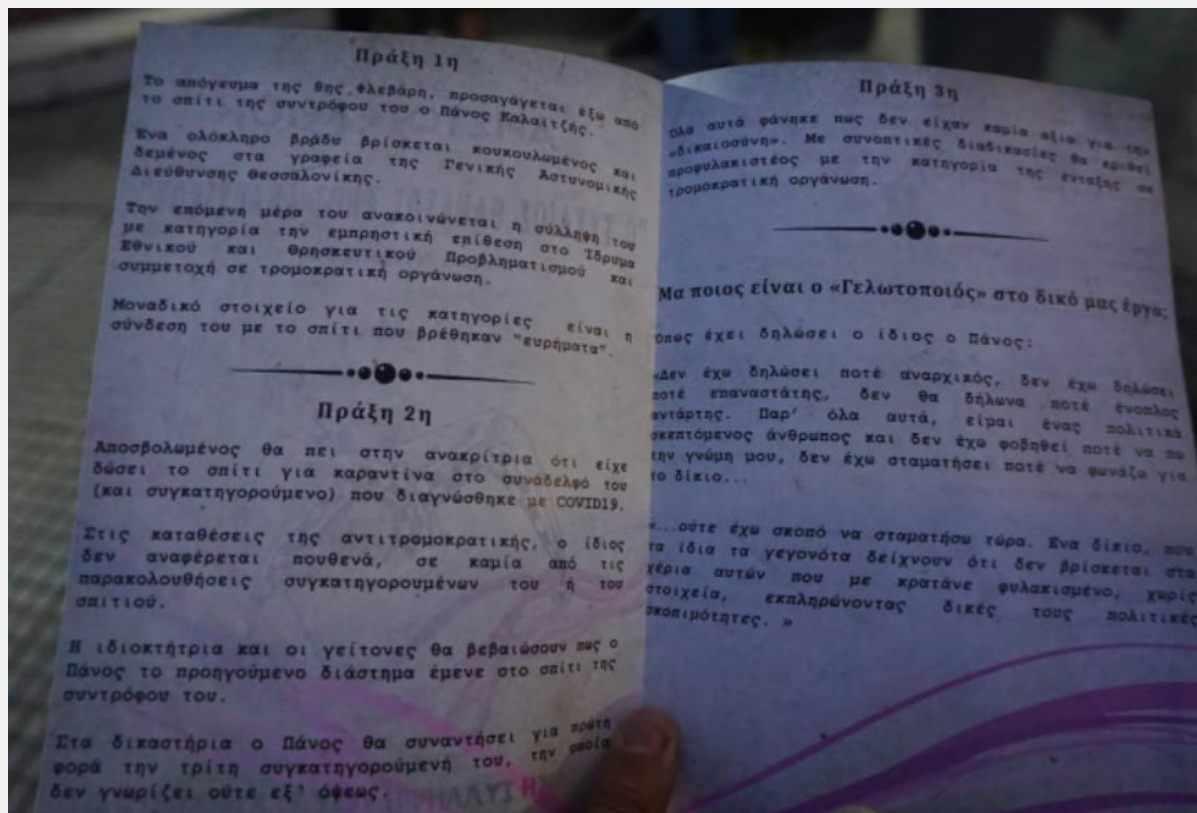 Πράξη 1η
Το απόγευμα της 8ης Φλεβάρη, προσαγάγεται έξω από
το σπίτι της συντρόφου του ο Πάνος Καλαιτζής.
Ένα ολόκληρο βράδυ βρίσκεται κουκουλωμένος και
δεμένος στα γραφεία της Γενικής Αστυνομικής
Διεύθυνσης Θεσσαλονίκης.
Την επόμενη μέρα του ανακοινώνεται η σύλληψη του
με κατηγορία την εμπρηστική επίθεση στο Ίδρυμα
Εθνικού και Θρησκευτικού Προβληματισμού και
συμμετοχή σε τρομοκρατική οργάνωση.
Μοναδικό στοιχείο για τις κατηγορίες είναι η
σύνδεση του με το σπίτι που βρέθηκαν "ευρήματα".
Πράξη 2η
Αποσβολωμένος θα πει στην ανακρίτρια ότι είχε
δώσει το σπίτι για καραντίνα στο συνάδελφό του
(και συγκατηγορούμενο) που διαγνώσθηκε με COVID19.
Στις καταθέσεις της αντιτρομοκρατικής, ο ίδιος
δεν αναφέρεται πουθενά, σε καμία από τις
παρακολουθήσεις συγκατηγορουμένων του ή του
σπιτιού.
Η ιδιοκτήτρια και οι γείτονες θα βεβαιώσουν πως ο
Πάνος το προηγούμενο διάστημα έμενε στο σπίτι της
συντρόφου του.
Στα δικαστήρια ο Πάνος θα συναντήσει για πρώτη
φορά την τρίτη συγκατηγορούμενή του, την οποία
δεν γνωρίζει ούτε εξ' όψεως.
Πράξη 3η
Όλα αυτά φάνηκε πως δεν είχαν καμία αξία για την
«δικαιοσύνη». Με συνοπτικές διαδικασίες θα κριθεί
προφυλακιστέος με την κατηγορία της ένταξης σε
τρομοκρατική οργάνωση.
Μα ποιος είναι ο «Γελωτοποιός» στο δικό μας έργο;
Όπως έχει δηλώσει ο ίδιος ο Πάνος:
«Δεν έχω δηλώσει ποτέ αναρχικός, δεν έχω δηλώσει
ποτέ επαναστάτης, δεν θα δήλωνα ποτέ ένοπλος
αντάρτης. Παρ' όλα αυτά, είμαι ένας πολιτικά
σκεπτόμενος άνθρωπος και δεν έχω φοβηθεί ποτέ να πω
την γνώμη μου, δεν έχω σταματήσει ποτέ να φωνάζω για
το δίκιο...
«...ούτε έχω σκοπό να σταματήσω τώρα. Ένα δίκιο, που
τα ίδια τα γεγονότα δείχνουν ότι δεν βρίσκεται στα
χέρια αυτών που με κρατάνε φυλακισμένο, χωρίς
στοιχεία, εκπληρώνοντας δικές τους πολιτικές
σκοπιμότητες. »